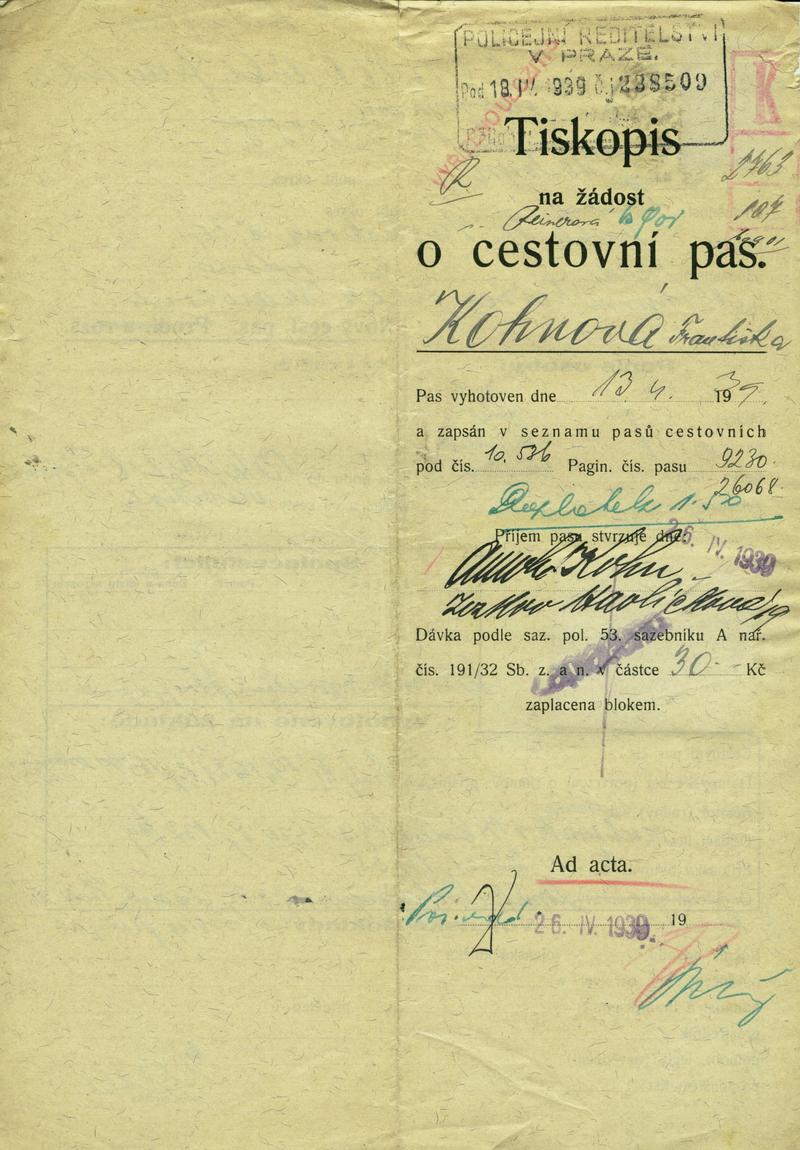 POLICEJNÍ ŘEDITELSTVÍ
V PRAZE.
Pod 18.IV. 939 Č.j 238509
K
Tiskopis
R
2763
na žádost
107
o cestovní pas.
Kohnová Františka
Pas vyhotoven dne 13 4. 1939.
a zapsán v seznamu pasů cestovních
pod čís. 10,536 Pagin. čís. pasu 9230
26068
Doplatek 1.50
Příjem pasu stvrzuje dne: 26. IV. 1939
Kohn
Havlíčkova 19
Dávka podle saz. pol. 53. sazebníku A nař.
čís. 191/32 Sb. z. a n. v částce 30.- Kč
zaplacena blokem.
Ad acta.
26. IV. 1939 19